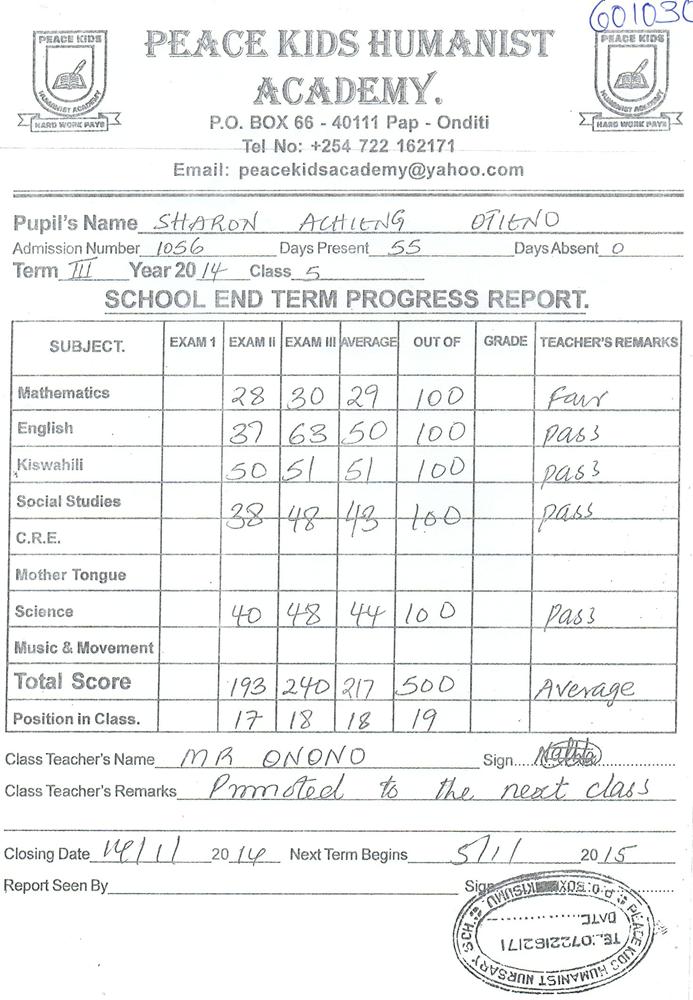 601030
PEACE KIDS
HUMANIST ACADEMY
HARD WORK PAYS
PEACE KIDS HUMANIST
ACADEMY.
PEACE KIDS
HUMANIST ACADEMY
HARD WORK PAYS
P.O. BOX 66 - 40111 Pap - Onditi
Tel No: +254 722 162171
Email: peacekidsacademy@yahoo.com
Pupil's Name SHARON ACHIENG OTIENO
Admission Number 1056 Days Present 55 Days Absent 0
Term III Year 2014 Class 5
SCHOOL END TERM PROGRESS REPORT.
SUBJECT. EXAM 1 EXAM II EXAM III AVERAGE OUT OF GRADE TEACHER'S REMARKS
Mathematics 28 30 29 100 Fair
English 37 63 50 100 pass
Kiswahili 50 51 51 100 pass
Social Studies 38 48 43 100 pass
C.R.E.
Mother Tongue
Science 40 48 44 100 Pass
Music & Movement
Total Score 193 240 217 500 Average
Position in Class. 17 18 18 19
Class Teacher's Name MR ONONO Sign
Class Teacher's Remarks Promoted to the next class
Closing Date 14/11 2014 Next Term Begins 5/1 2015
Report Seen By Sign
PEACE KIDS HUMANIST NURSARY SCH.
P.O. BOX KISUMU
DATE
TEL: 0722162171